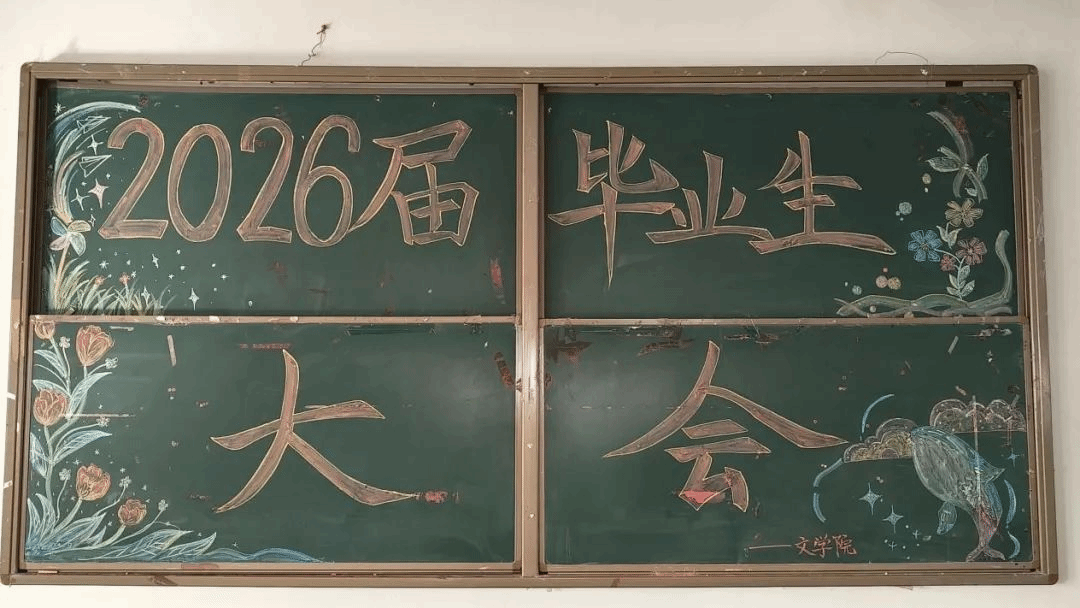 2026届毕业生
大会
——文学院